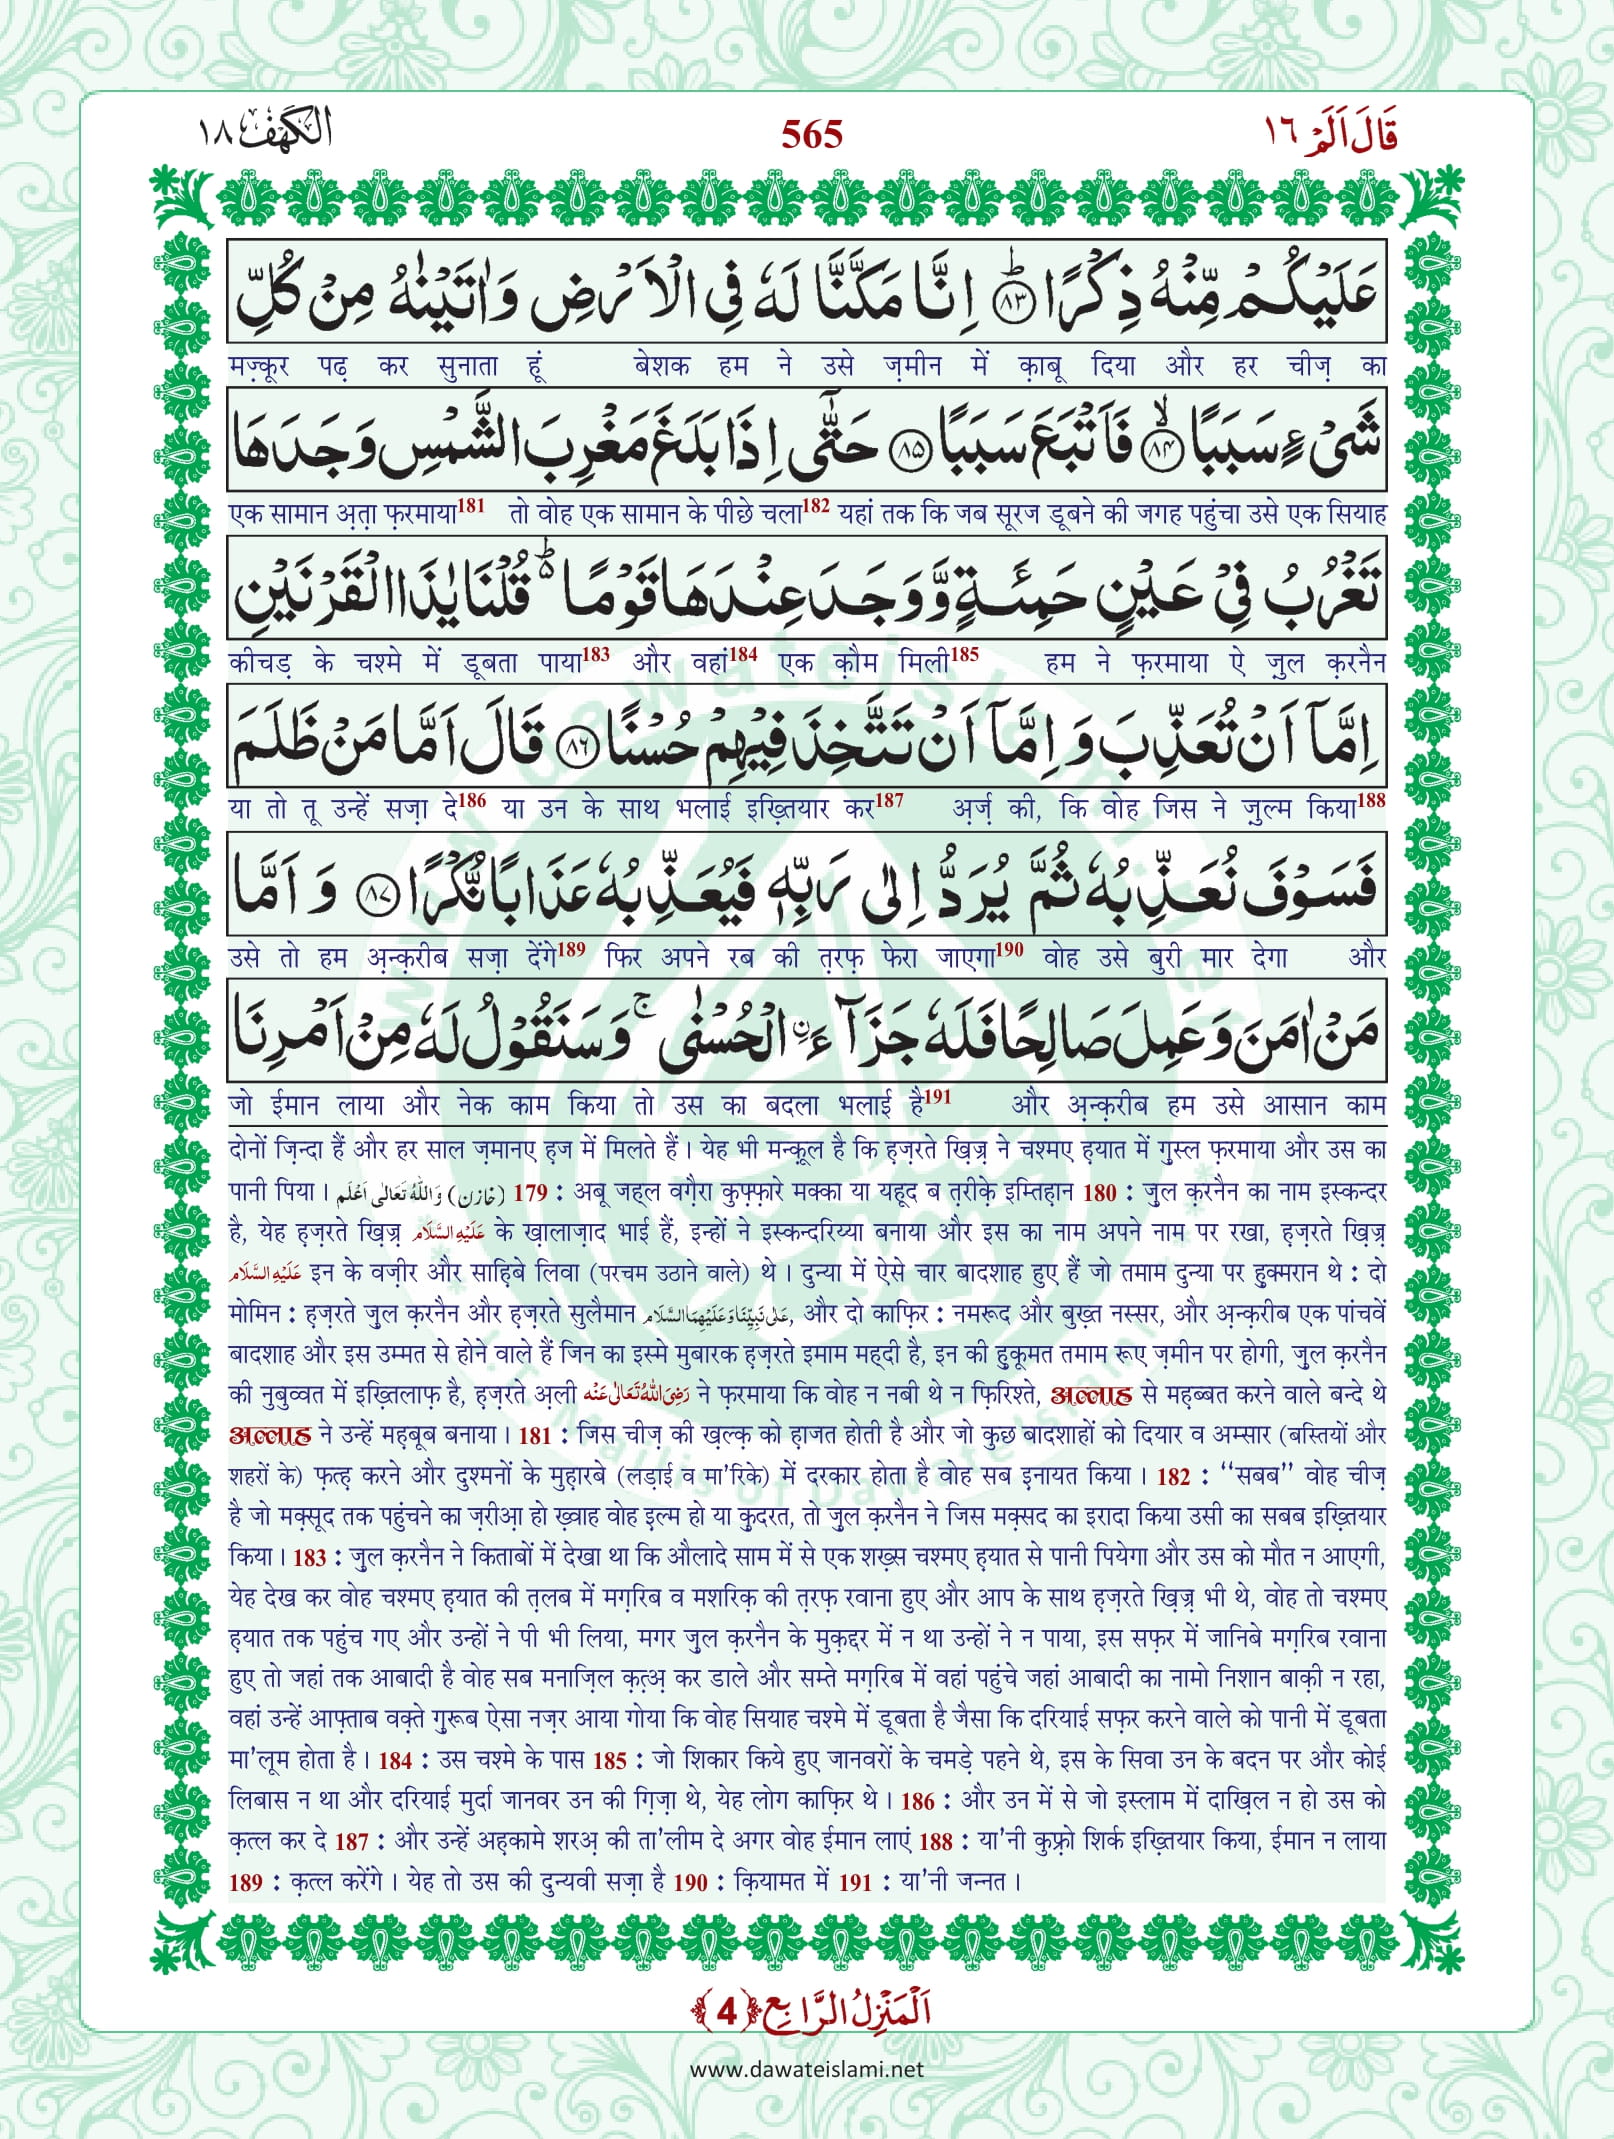 الكهف ١٨
565
قَالَ اَلَمْ ١٦
عَلَيْكُمْ مِّنْهُ ذِكْرًا ؕ﴿۸۳﴾ اِنَّا مَكَّنَّا لَهٗ فِی الْاَرْضِ وَاٰتَيْنٰهُ مِنْ كُلِّ
मज़्कूर पढ़ कर सुनाता हूं बेशक हम ने उसे ज़मीन में क़ाबू दिया और हर चीज़ का
شَیْءٍ سَبَبًا ۙ﴿۸۴﴾ فَاَتْبَعَ سَبَبًا ﴿۸۵﴾ حَتّٰۤی اِذَا بَلَغَ مَغْرِبَ الشَّمْسِ وَجَدَهَا
एक सामान अ़त़ा फ़रमाया181 तो वोह एक सामान के पीछे चला182 यहां तक कि जब सूरज डूबने की जगह पहुंचा उसे एक सियाह
تَغْرُبُ فِیْ عَيْنٍ حَمِئَةٍ وَّوَجَدَ عِنْدَهَا قَوْمًا ؕ۬ قُلْنَا يٰذَا الْقَرْنَيْنِ
कीचड़ के चश्मे में डूबता पाया183 और वहां184 एक क़ौम मिली185 हम ने फ़रमाया ऐ ज़ुल क़रनैन
اِمَّاۤ اَنْ تُعَذِّبَ وَ اِمَّاۤ اَنْ تَتَّخِذَ فِيْهِمْ حُسْنًا ﴿۸۶﴾ قَالَ اَمَّا مَنْ ظَلَمَ
या तो तू उन्हें सज़ा दे186 या उन के साथ भलाई इख़्तियार कर187 अ़र्ज़ की, कि वोह जिस ने ज़ुल्म किया188
فَسَوْفَ نُعَذِّبُهٗ ثُمَّ يُرَدُّ اِلٰی رَبِّهٖ فَيُعَذِّبُهٗ عَذَابًا نُّكْرًا ﴿۸۷﴾ وَ اَمَّا
उसे तो हम अ़न्क़रीब सज़ा देंगे189 फिर अपने रब की त़रफ़ फेरा जाएगा190 वोह उसे बुरी मार देगा और
مَنْ اٰمَنَ وَعَمِلَ صَالِحًا فَلَهٗ جَزَآءَ ۨ الْحُسْنٰی ۚ وَسَنَقُوْلُ لَهٗ مِنْ اَمْرِنَا
जो ईमान लाया और नेक काम किया तो उस का बदला भलाई है191 और अ़न्क़रीब हम उसे आसान काम
दोनों ज़िन्दा हैं और हर साल ज़मानए ह़ज में मिलते हैं। येह भी मन्क़ूल है कि ह़ज़रते ख़िज़्र ने चश्मए ह़यात में ग़ुस्ल फ़रमाया और उस का
पानी पिया। (خازن) وَاللهُ تَعَالٰی اَعْلَم 179 : अबू जह्ल वग़ैरा कुफ़्फ़ारे मक्का या यहूद ब त़रीक़े इम्तिह़ान 180 : ज़ुल क़रनैन का नाम इस्कन्दर
है, येह ह़ज़रते ख़िज़्र عَلَيْهِ السَّلَام के ख़ालाज़ाद भाई हैं, इन्हों ने इस्कन्दरिय्या बनाया और इस का नाम अपने नाम पर रखा, ह़ज़रते ख़िज़्र
عَلَيْهِ السَّلَام इन के वज़ीर और साह़िबे लिवा (परचम उठाने वाले) थे। दुन्या में ऐसे चार बादशाह हुए हैं जो तमाम दुन्या पर हुक्मरान थे : दो
मोमिन : ह़ज़रते ज़ुल क़रनैन और ह़ज़रते सुलैमान عَلٰی نَبِيِّنَا وَعَلَيْهِمَا السَّلَام, और दो काफ़िर : नमरूद और बुख़्त नस्सर, और अ़न्क़रीब एक पांचवें
बादशाह और इस उम्मत से होने वाले हैं जिन का इस्मे मुबारक ह़ज़रते इमाम मह्दी है, इन की हुकूमत तमाम रूए ज़मीन पर होगी, ज़ुल क़रनैन
की नुबुव्वत में इख़्तिलाफ़ है, ह़ज़रते अ़ली رَضِیَ اللهُ تَعَالٰی عَنْه ने फ़रमाया कि वोह न नबी थे न फ़िरिश्ते, अल्लाह से मह़ब्बत करने वाले बन्दे थे
अल्लाह ने उन्हें मह़बूब बनाया। 181 : जिस चीज़ की ख़ल्क़ को ह़ाजत होती है और जो कुछ बादशाहों को दियार व अम्सार (बस्तियों और
शहरों के) फ़त्ह़ करने और दुश्मनों के मुह़ारबे (लड़ाई व मा'रिके) में दरकार होता है वोह सब इ़नायत किया। 182 : ‘‘सबब’’ वोह चीज़
है जो मक़्सूद तक पहुंचने का ज़रीआ़ हो ख़्वाह वोह इ़ल्म हो या क़ुदरत, तो ज़ुल क़रनैन ने जिस मक़्सद का इरादा किया उसी का सबब इख़्तियार
किया। 183 : ज़ुल क़रनैन ने किताबों में देखा था कि औलादे साम में से एक शख़्स चश्मए ह़यात से पानी पियेगा और उस को मौत न आएगी,
येह देख कर वोह चश्मए ह़यात की त़लब में मग़रिब व मशरिक़ की त़रफ़ रवाना हुए और आप के साथ ह़ज़रते ख़िज़्र भी थे, वोह तो चश्मए
ह़यात तक पहुंच गए और उन्हों ने पी भी लिया, मगर ज़ुल क़रनैन के मुक़द्दर में न था उन्हों ने न पाया, इस सफ़र में जानिबे मग़रिब रवाना
हुए तो जहां तक आबादी है वोह सब मनाज़िल क़त़्अ़ कर डाले और सम्ते मग़रिब में वहां पहुंचे जहां आबादी का नामो निशान बाक़ी न रहा,
वहां उन्हें आफ़्ताब वक़्ते ग़ुरूब ऐसा नज़र आया गोया कि वोह सियाह चश्मे में डूबता है जैसा कि दरियाई सफ़र करने वाले को पानी में डूबता
मा'लूम होता है। 184 : उस चश्मे के पास 185 : जो शिकार किये हुए जानवरों के चमड़े पहने थे, इस के सिवा उन के बदन पर और कोई
लिबास न था और दरियाई मुर्दा जानवर उन की ग़िज़ा थे, येह लोग काफ़िर थे। 186 : और उन में से जो इस्लाम में दाख़िल न हो उस को
क़त्ल कर दे 187 : और उन्हें अह़कामे शरअ़ की ता'लीम दे अगर वोह ईमान लाएं 188 : या'नी कुफ़्रो शिर्क इख़्तियार किया, ईमान न लाया
189 : क़त्ल करेंगे। येह तो उस की दुन्यवी सज़ा है 190 : क़ियामत में 191 : या'नी जन्नत।
اَلْمَنْزِلُ الرَّابِع ﴿4﴾
www.dawateislami.net